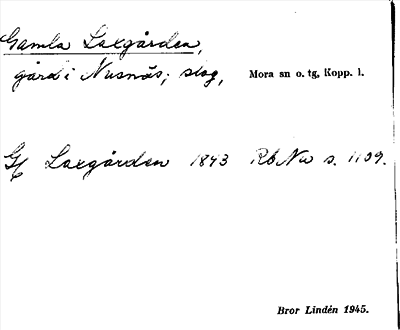 Gamla Laxgården,
gård i Nusnäs; slog, Mora sn o. tg, Kopp. l.
G/ Laxgården 1843 Rb Nu s. 1109.
Bror Lindén 1945.